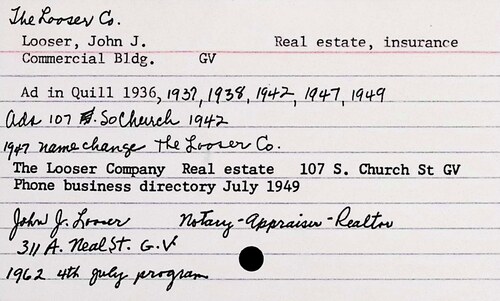 The Looser Co.
Looser, John J. Real estate, insurance
Commercial Bldg. GV
Ad in Quill 1936, 1937, 1938, 1942, 1947, 1949
Ads 107 So Church 1942
1947 name change The Looser Co.
The Looser Company Real estate 107 S. Church St GV
Phone business directory July 1949
John J. Looser Notary - Appraiser - Realtor
311 A. Neal St. G.V
1962 4th july program